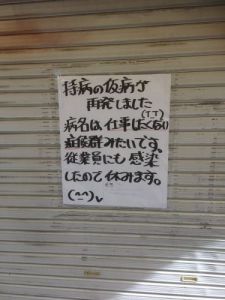 持病の仮病が
再発しました
(TT)
病名は、仕事したくない
症候群みたいです。
従業員にも感染
したので休みます。
(^^)v